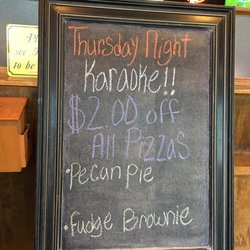 to be
Thursday Night
Karaoke!!
$2.00 off
All Pizzas
• Pecan Pie
• Fudge Brownie